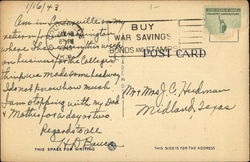 1/16/43.
Am in Louisville on my
return from Washington
where I have been this week
on business for the college
think we made some headway
do not know how much.
I am stopping with my Dad
& Mother for a day or two
Regards to all
H D Bauer
THIS SPACE FOR WRITING
BUY
WAR SAVINGS
BONDS AND STAMPS
POST CARD
Mr & Mrs J C Hickman
Midland, Texas
THIS SIDE IS FOR THE ADDRESS